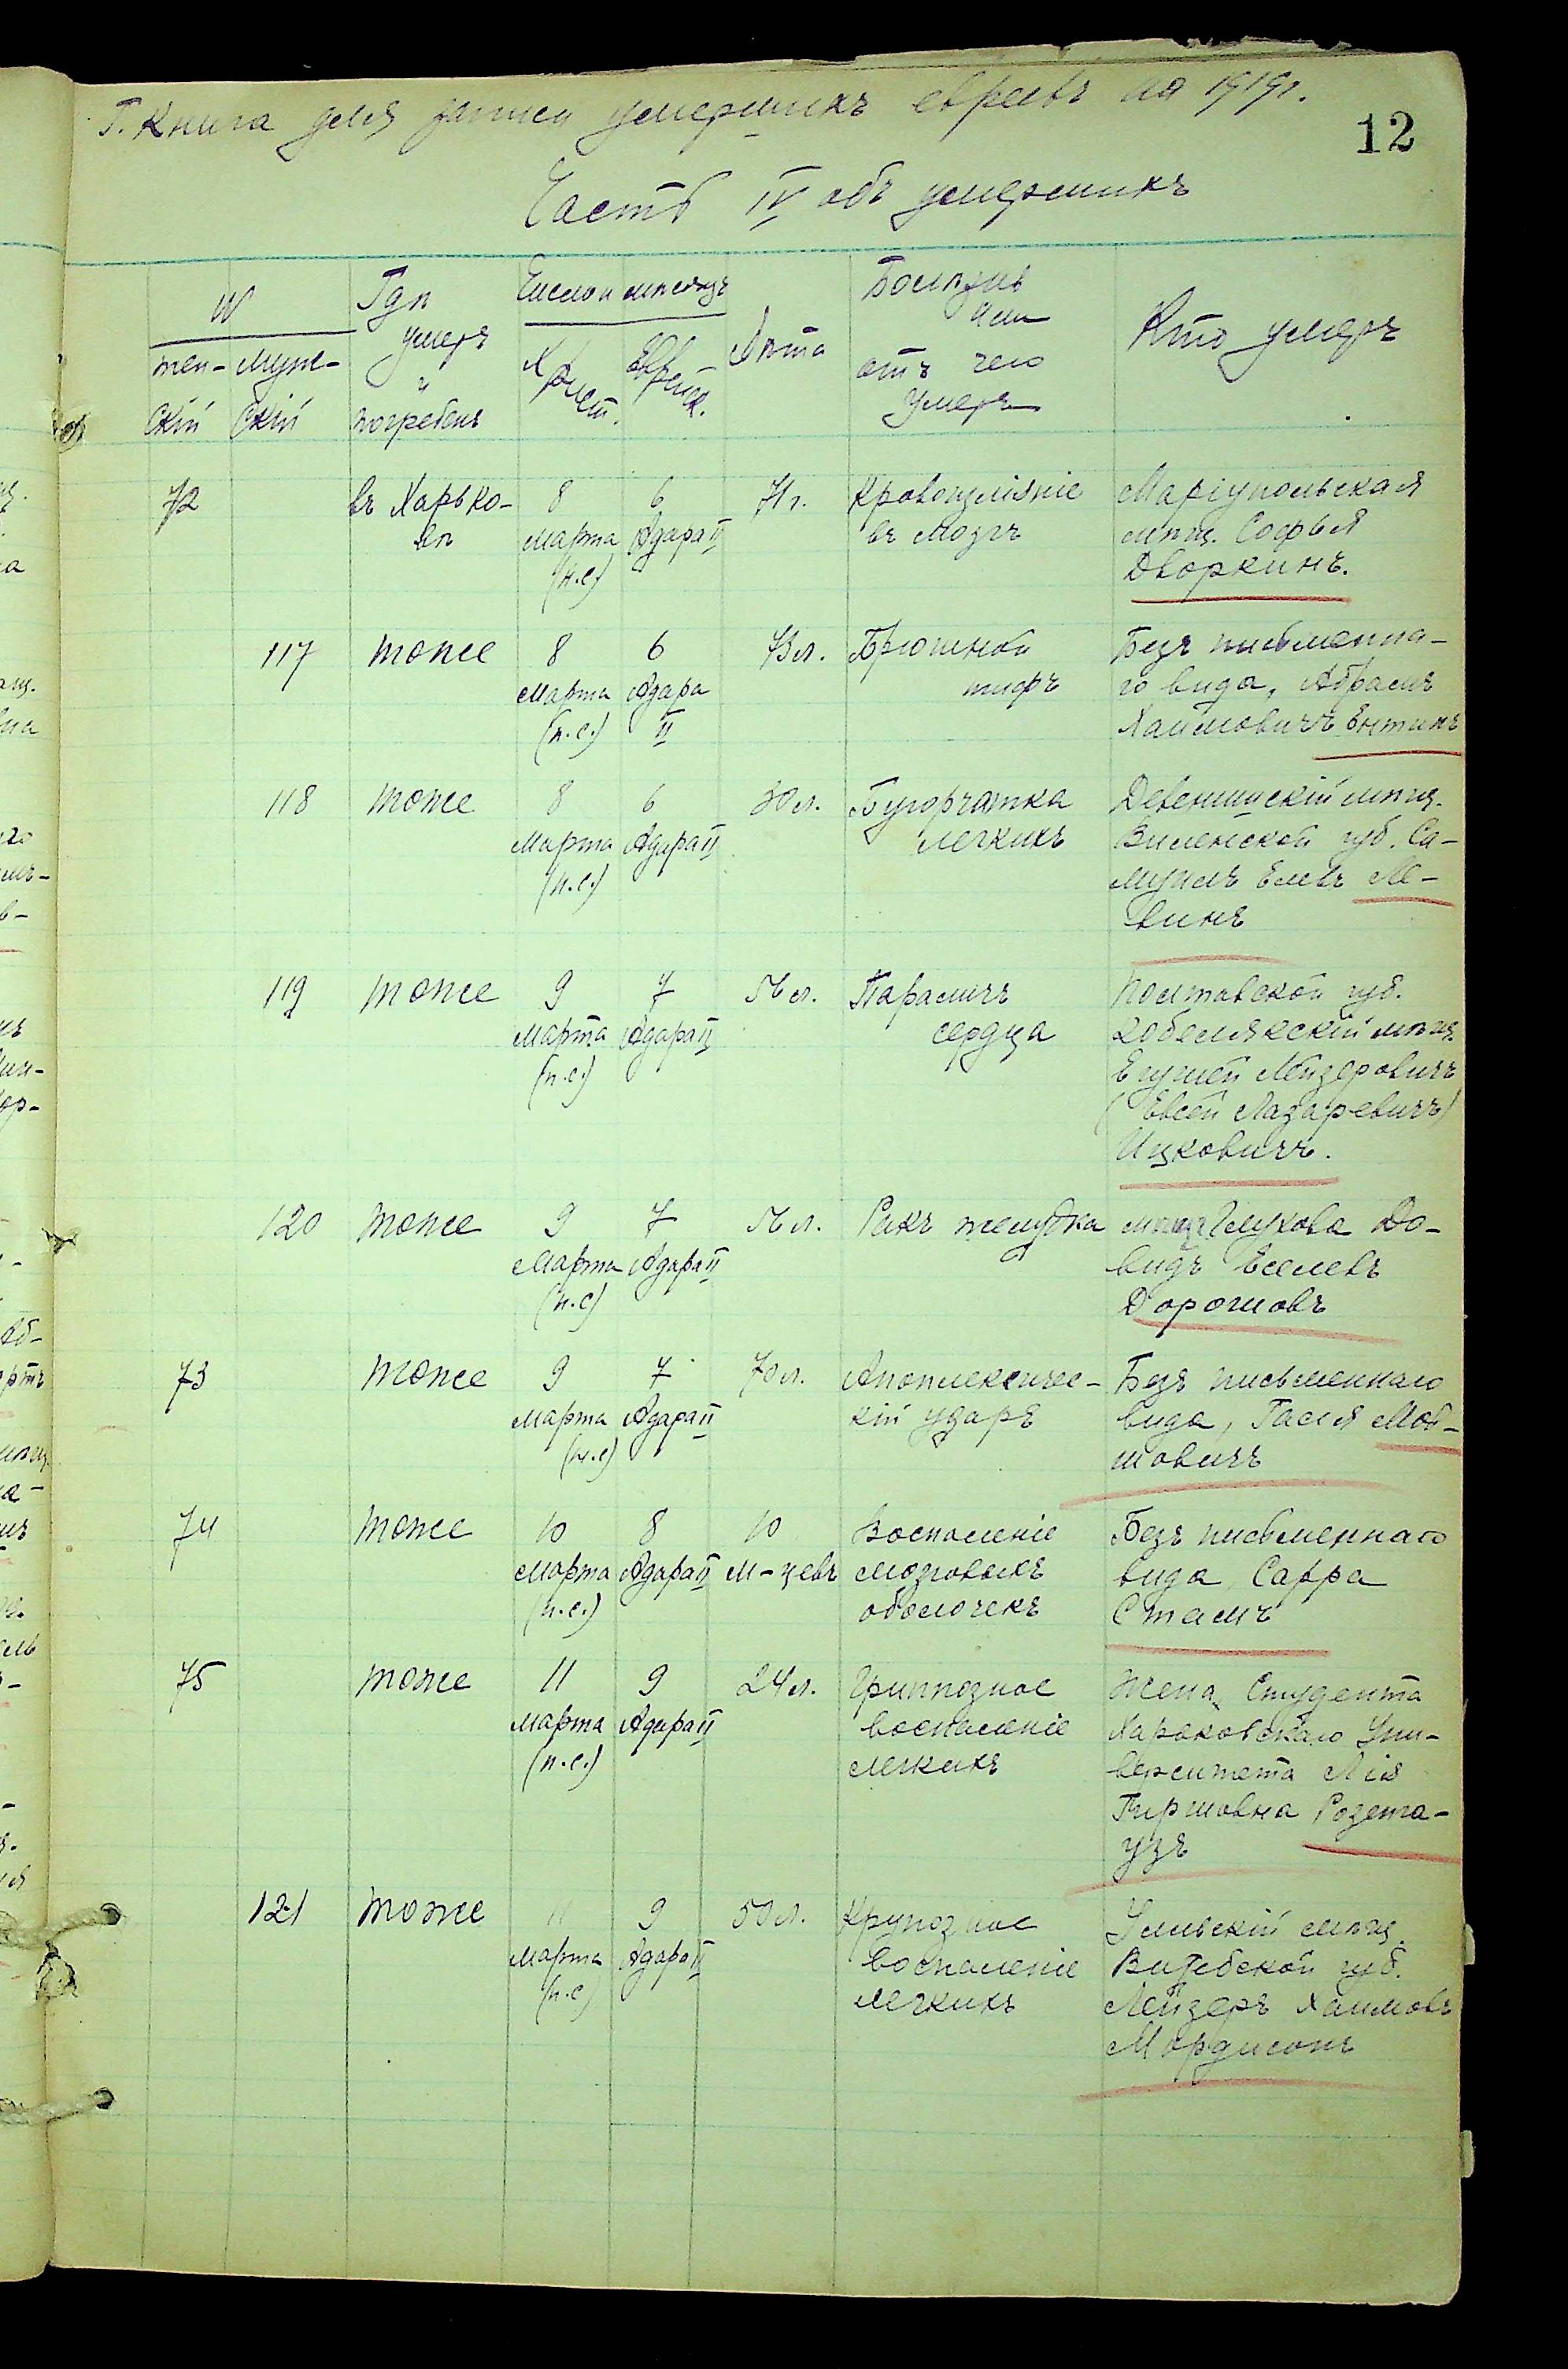 Г. Книга для записи умершихъ евреевъ на 1919 г.
12
Часть IV объ умершихъ
№
жен-скій
муж-скій
Гдѣ умеръ и погребенъ
Число и мѣсяцъ
Христ.
Еврейск.
Лѣта
Болѣзнь или отъ чего умеръ
Кто умеръ
72 въ Харько- 8 6 71 г. Кровоизліяніе Маріупольская
вѣ Марта Адара II въ мозгъ мѣщ. Софья
(н.с.) Дворкинъ.
117 тоже 8 6 73 л. Брюшной Безъ письменна-
Марта Адара тифъ го вида, Абрамъ
(н.с.) II Хаимовичъ Энтинъ
118 тоже 8 6 30 л. Бугорчатка Девенишскій мѣщ.
Марта Адара II легкихъ Виленской губ. Са-
(н.с.) муилъ Елевъ Ле-
винъ
119 тоже 9 7 56 л. Параличъ Полтавской губ.
Марта Адара II сердца Кобелякскій мѣщ.
(н.с.) Лейзеровичъ
(Евсей Лазаревичъ)
Ицковичъ.
120 тоже 9 7 56 л. Ракъ желудка мѣщ. Глухова До-
Марта Адара II видъ
(н.с) Дорошовъ
73 тоже 9 7 70 л. Апоплексичес- Безъ письменнаго
Марта Адара II кій ударъ вида, Гася Мов-
(н.с) шовичъ
74 тоже 10 8 10 Воспаленіе Безъ письменнаго
Марта Адара II м-цевъ мозговыхъ вида, Сарра
(н.с.) оболочекъ Сталь
75 тоже 11 9 24 л. Гриппозное Жена Студента
Марта Адара II воспаленіе Харьковскаго Уни-
(н.с.) легкихъ верситета Лія
Гиршовна Розета-
узъ
121 тоже 11 9 50 л. Крупозное мѣщ.
Марта Адара II воспаленіе Витебской губ.
(н.с) легкихъ Лейзеръ Хаимовъ
Мордисонъ